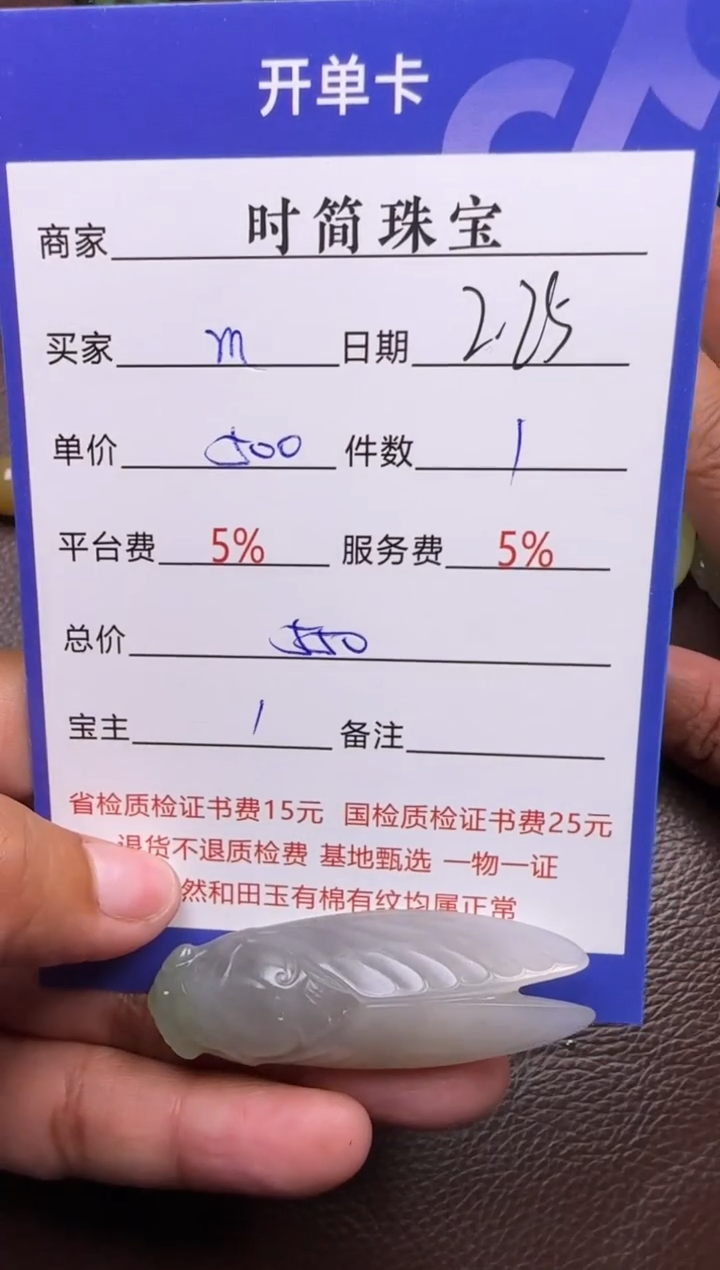 开单卡
商家 时简珠宝
买家 m 日期 2.25
单价 500 件数 1
平台费 5% 服务费 5%
总价 550
宝主 1 备注
省检质检证书费15元 国检质检证书费25元
退货不退质检费 基地甄选 一物一证
然和田玉有棉有纹均属正常